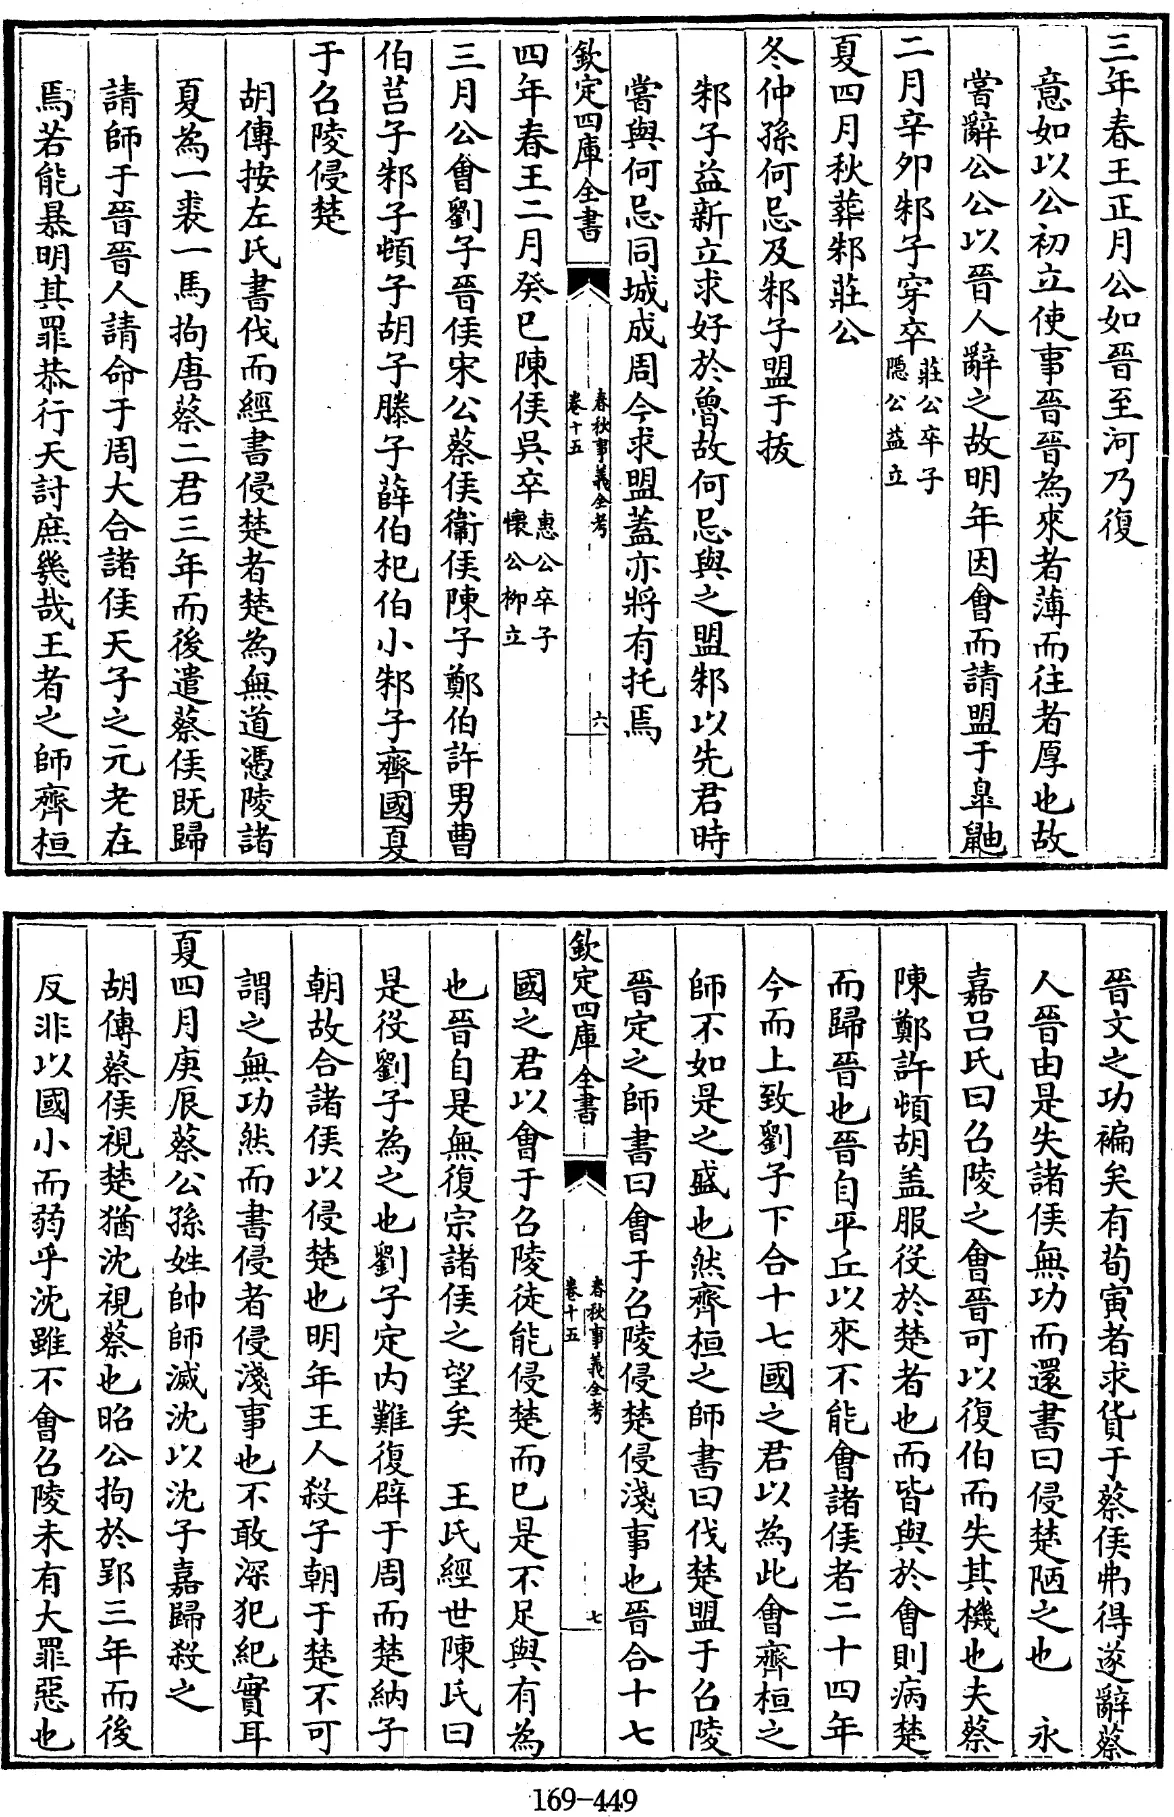 三年春王正月公如晉至河乃復
意如以公初立使事晉晉為來者薄而往者厚也故
嘗辭公公以晉人辭之故明年因會而請盟于臯鼬
二月辛卯邾子穿卒莊公卒子隱公益立
夏四月秋葬邾莊公
冬仲孫何忌及邾子盟于拔
邾子益新立求好於魯故何忌與之盟邾以先君時
嘗與何忌同城成周今求盟蓋亦將有托焉
欽定四庫全書
春秋事義全考
卷十五
六
四年春王二月癸巳陳侯吳卒惠公卒子懷公柳立
三月公會劉子晉侯宋公蔡侯衛侯陳子鄭伯許男曹
伯莒子邾子頓子胡子滕子薛伯杞伯小邾子齊國夏
于召陵侵楚
胡傳按左氏書伐而經書侵楚者楚為無道憑陵諸
夏為一裘一馬拘唐蔡二君三年而後遣蔡侯既歸
請師于晉晉人請命于周大合諸侯天子之元老在
焉若能暴明其罪恭行天討庶幾哉王者之師齊桓
晉文之功褊矣有荀寅者求貨于蔡侯弗得遂辭蔡
人晉由是失諸侯無功而還書曰侵楚陋之也　永
嘉呂氏曰召陵之會晉可以復伯而失其機也夫蔡
陳鄭許頓胡盖服役於楚者也而皆與於會則病楚
而歸晉也晉自平丘以來不能會諸侯者二十四年
今而上致劉子下合十七國之君以為此會齊桓之
師不如是之盛也然齊桓之師書曰伐楚盟于召陵
晉定之師書曰會于召陵侵楚侵淺事也晉合十七
欽定四庫全書
春秋事義全考
卷十五
七
國之君以會于召陵徒能侵楚而已是不足與有為
也晉自是無復宗諸侯之望矣　王氏經世陳氏曰
是役劉子為之也劉子定内難復辟于周而楚納子
朝故合諸侯以侵楚也明年王人殺子朝于楚不可
謂之無功然而書侵者侵淺事也不敢深犯紀實耳
夏四月庚辰蔡公孫姓帥師滅沈以沈子嘉歸殺之
胡傳蔡侯視楚猶沈視蔡也昭公拘於郢三年而後
反非以國小而弱乎沈雖不會召陵未有大罪惡也
169-449